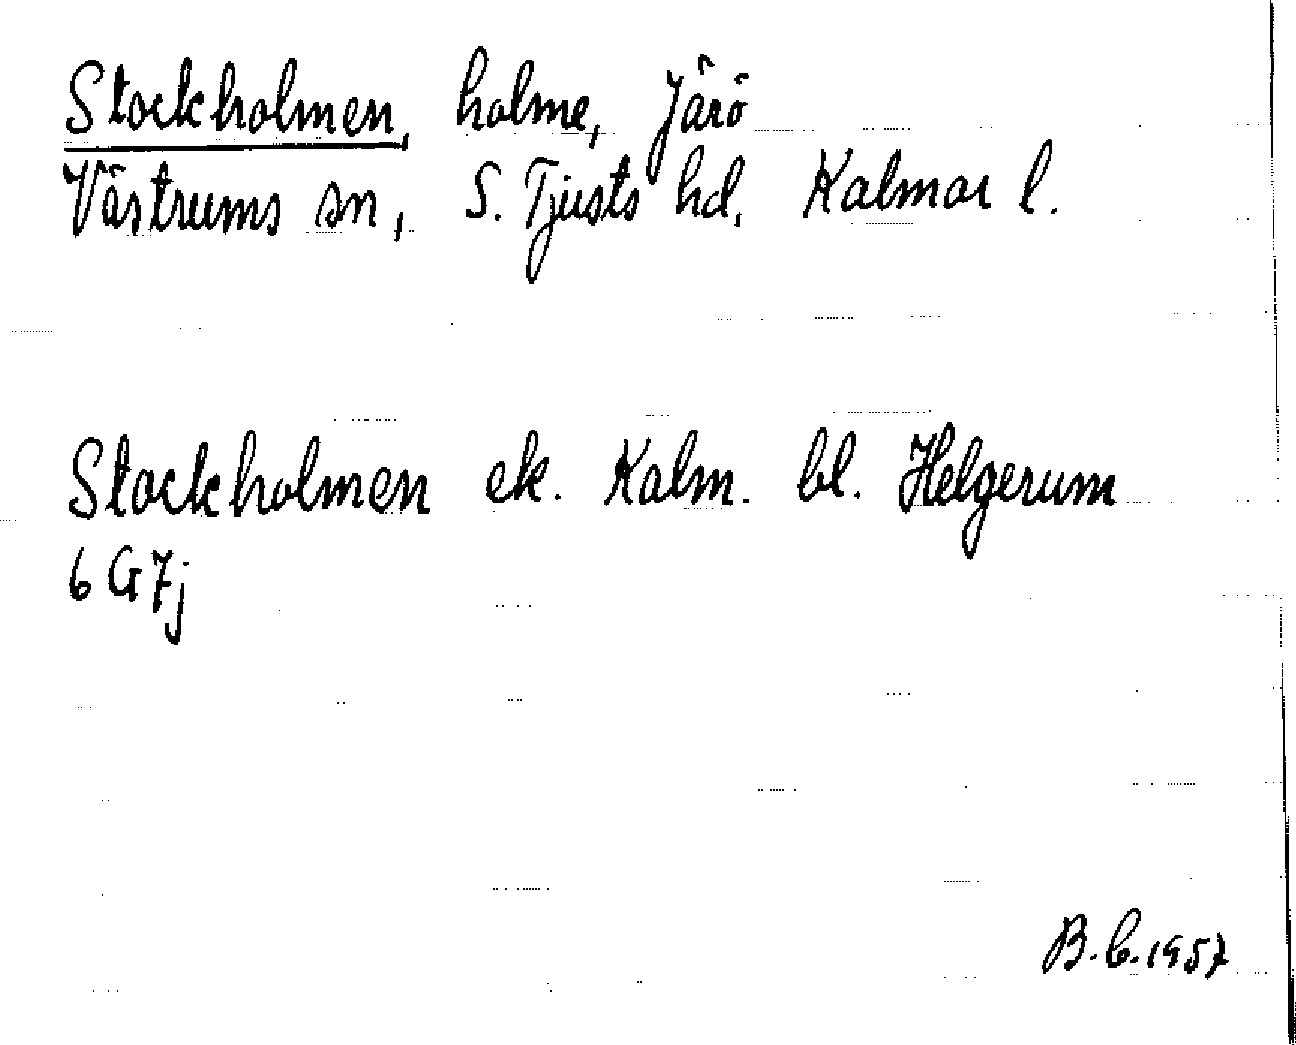 Stockholmen, holme, Järö
Västrums sn, S. Tjusts hd, Kalmar l.
Stockholmen ek. Kalm. bl. Helgerum
6 G 7j
B.C. 1957